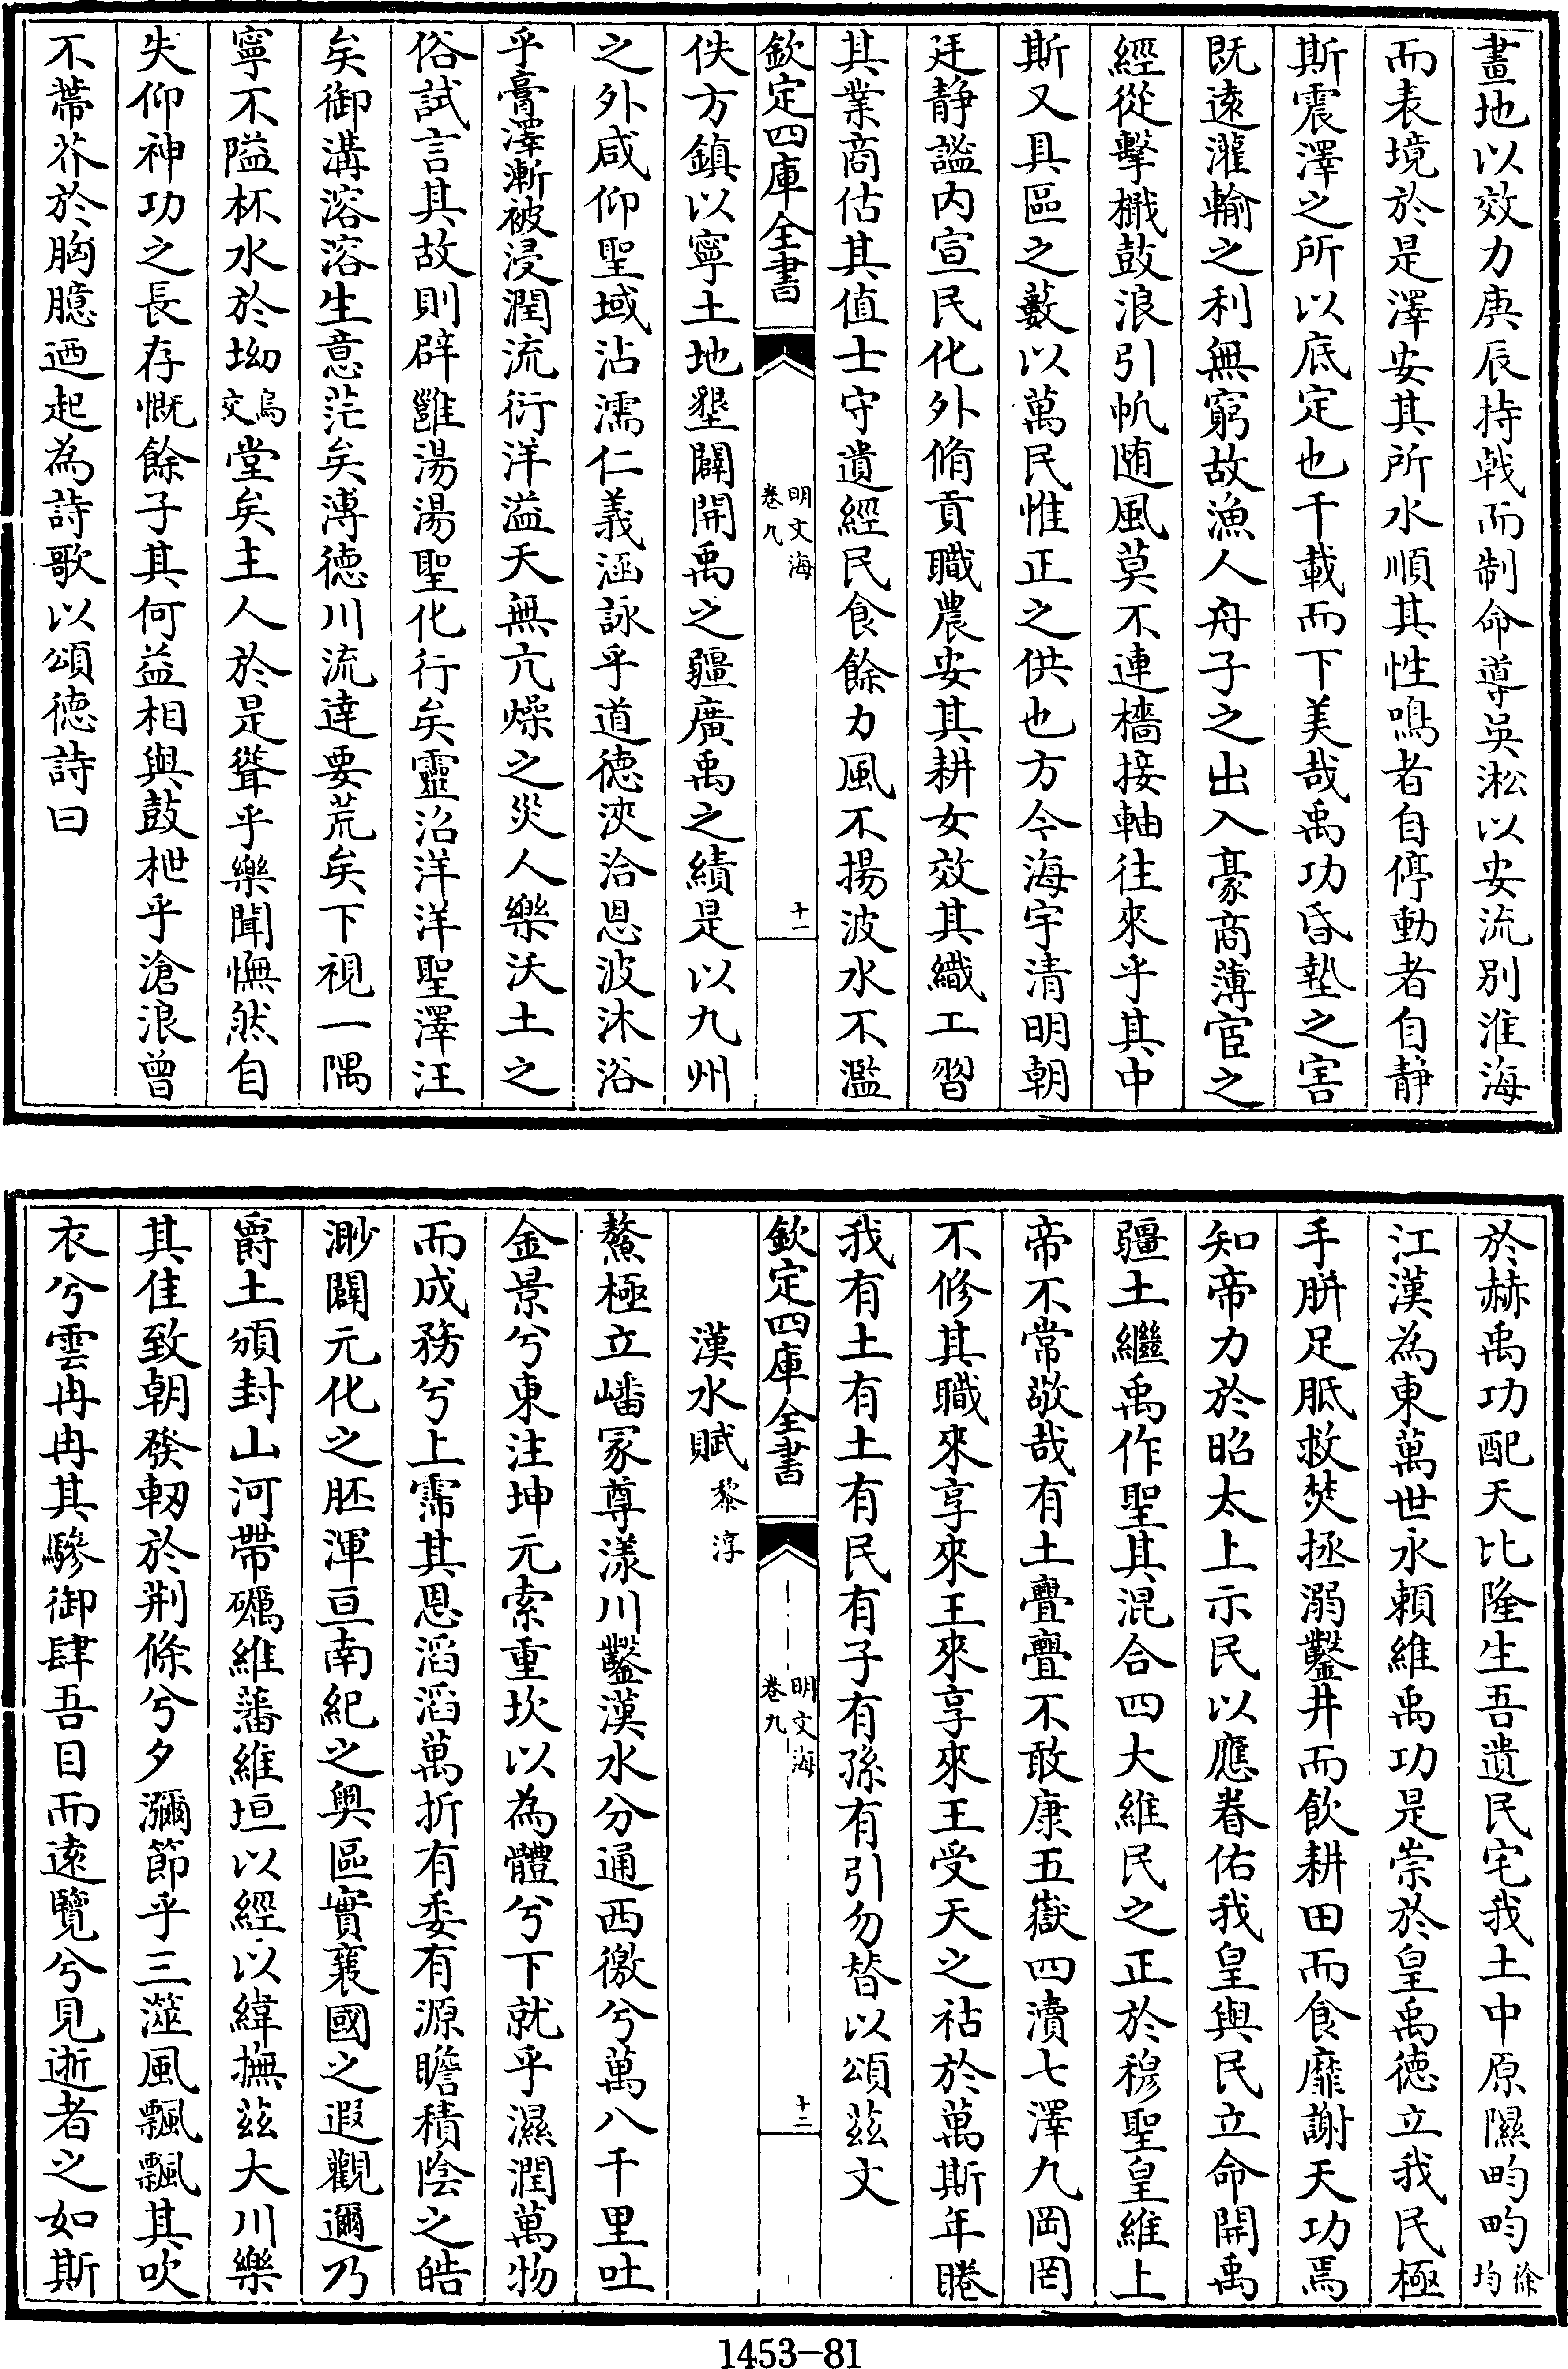 畫地以效力庚辰持戟而制命導吳淞以安流别淮海
而表境於是澤安其所水順其性鳴者自停動者自静
斯震澤之所以底定也千載而下美哉禹功昏墊之害
既逺灌輸之利無窮故漁人舟子之出入豪商薄宦之
經從擊檝鼓浪引帆随風莫不連檣接軸往來乎其中
斯又具區之藪以萬民惟正之供也方今海宇清明朝
廷静謐内宣民化外脩貢職農安其耕女效其織工習
其業商估其值士守遺經民食餘力風不揚波水不濫
欽定四庫全書
明文海
卷九
十一
佚方鎮以寧土地墾闢開禹之疆廣禹之績是以九州
之外咸仰聖域沾濡仁義涵詠乎道徳浹洽恩波沐浴
乎膏澤漸被浸潤流衍洋溢天無亢燥之災人樂沃土之
俗試言其故則辟雝湯湯聖化行矣靈沼洋洋聖澤汪
矣御溝溶溶生意茫矣溥徳川流達要荒矣下視一隅
寧不隘杯水於坳烏交堂矣主人於是聳乎樂聞憮然自
失仰神功之長存慨餘子其何益相與鼓枻乎滄浪曾
不蔕芥於胸臆迺起為詩歌以頌徳詩曰
於赫禹功配天比隆生吾遺民宅我土中原隰畇畇徐均
江漢為東萬世永頼維禹功是崇於皇禹徳立我民極
手胼足胝救焚拯溺鑿井而飲耕田而食靡謝天功焉
知帝力於昭太上示民以應眷佑我皇與民立命開禹
疆土繼禹作聖其混合四大維民之正於穆聖皇維上
帝不常敬哉有土亹亹不敢康五嶽四瀆七澤九岡罔
不修其職來享來王來享來王受天之祜於萬斯年睠
我有土有土有民有子有孫有引勿替以頌茲文
欽定四庫全書
明文海
卷九
十二
漢水賦黎淳
鰲極立嶓冢尊漾川鑿漢水分通西徼兮萬八千里吐
金景兮東注坤元索重坎以為體兮下就乎濕潤萬物
而成務兮上需其恩滔滔萬折有委有源瞻積陰之皓
渺闢元化之胚渾亘南紀之輿區實襄國之遐觀邇乃
爵土頒封山河帶礪維藩維垣以經以緯撫茲大川樂
其佳致朝發軔於荆條兮夕瀰節乎三澨風飄飄其吹
衣兮雲冉冉其驂御肆吾目而逺覽兮見逝者之如斯
1453-81